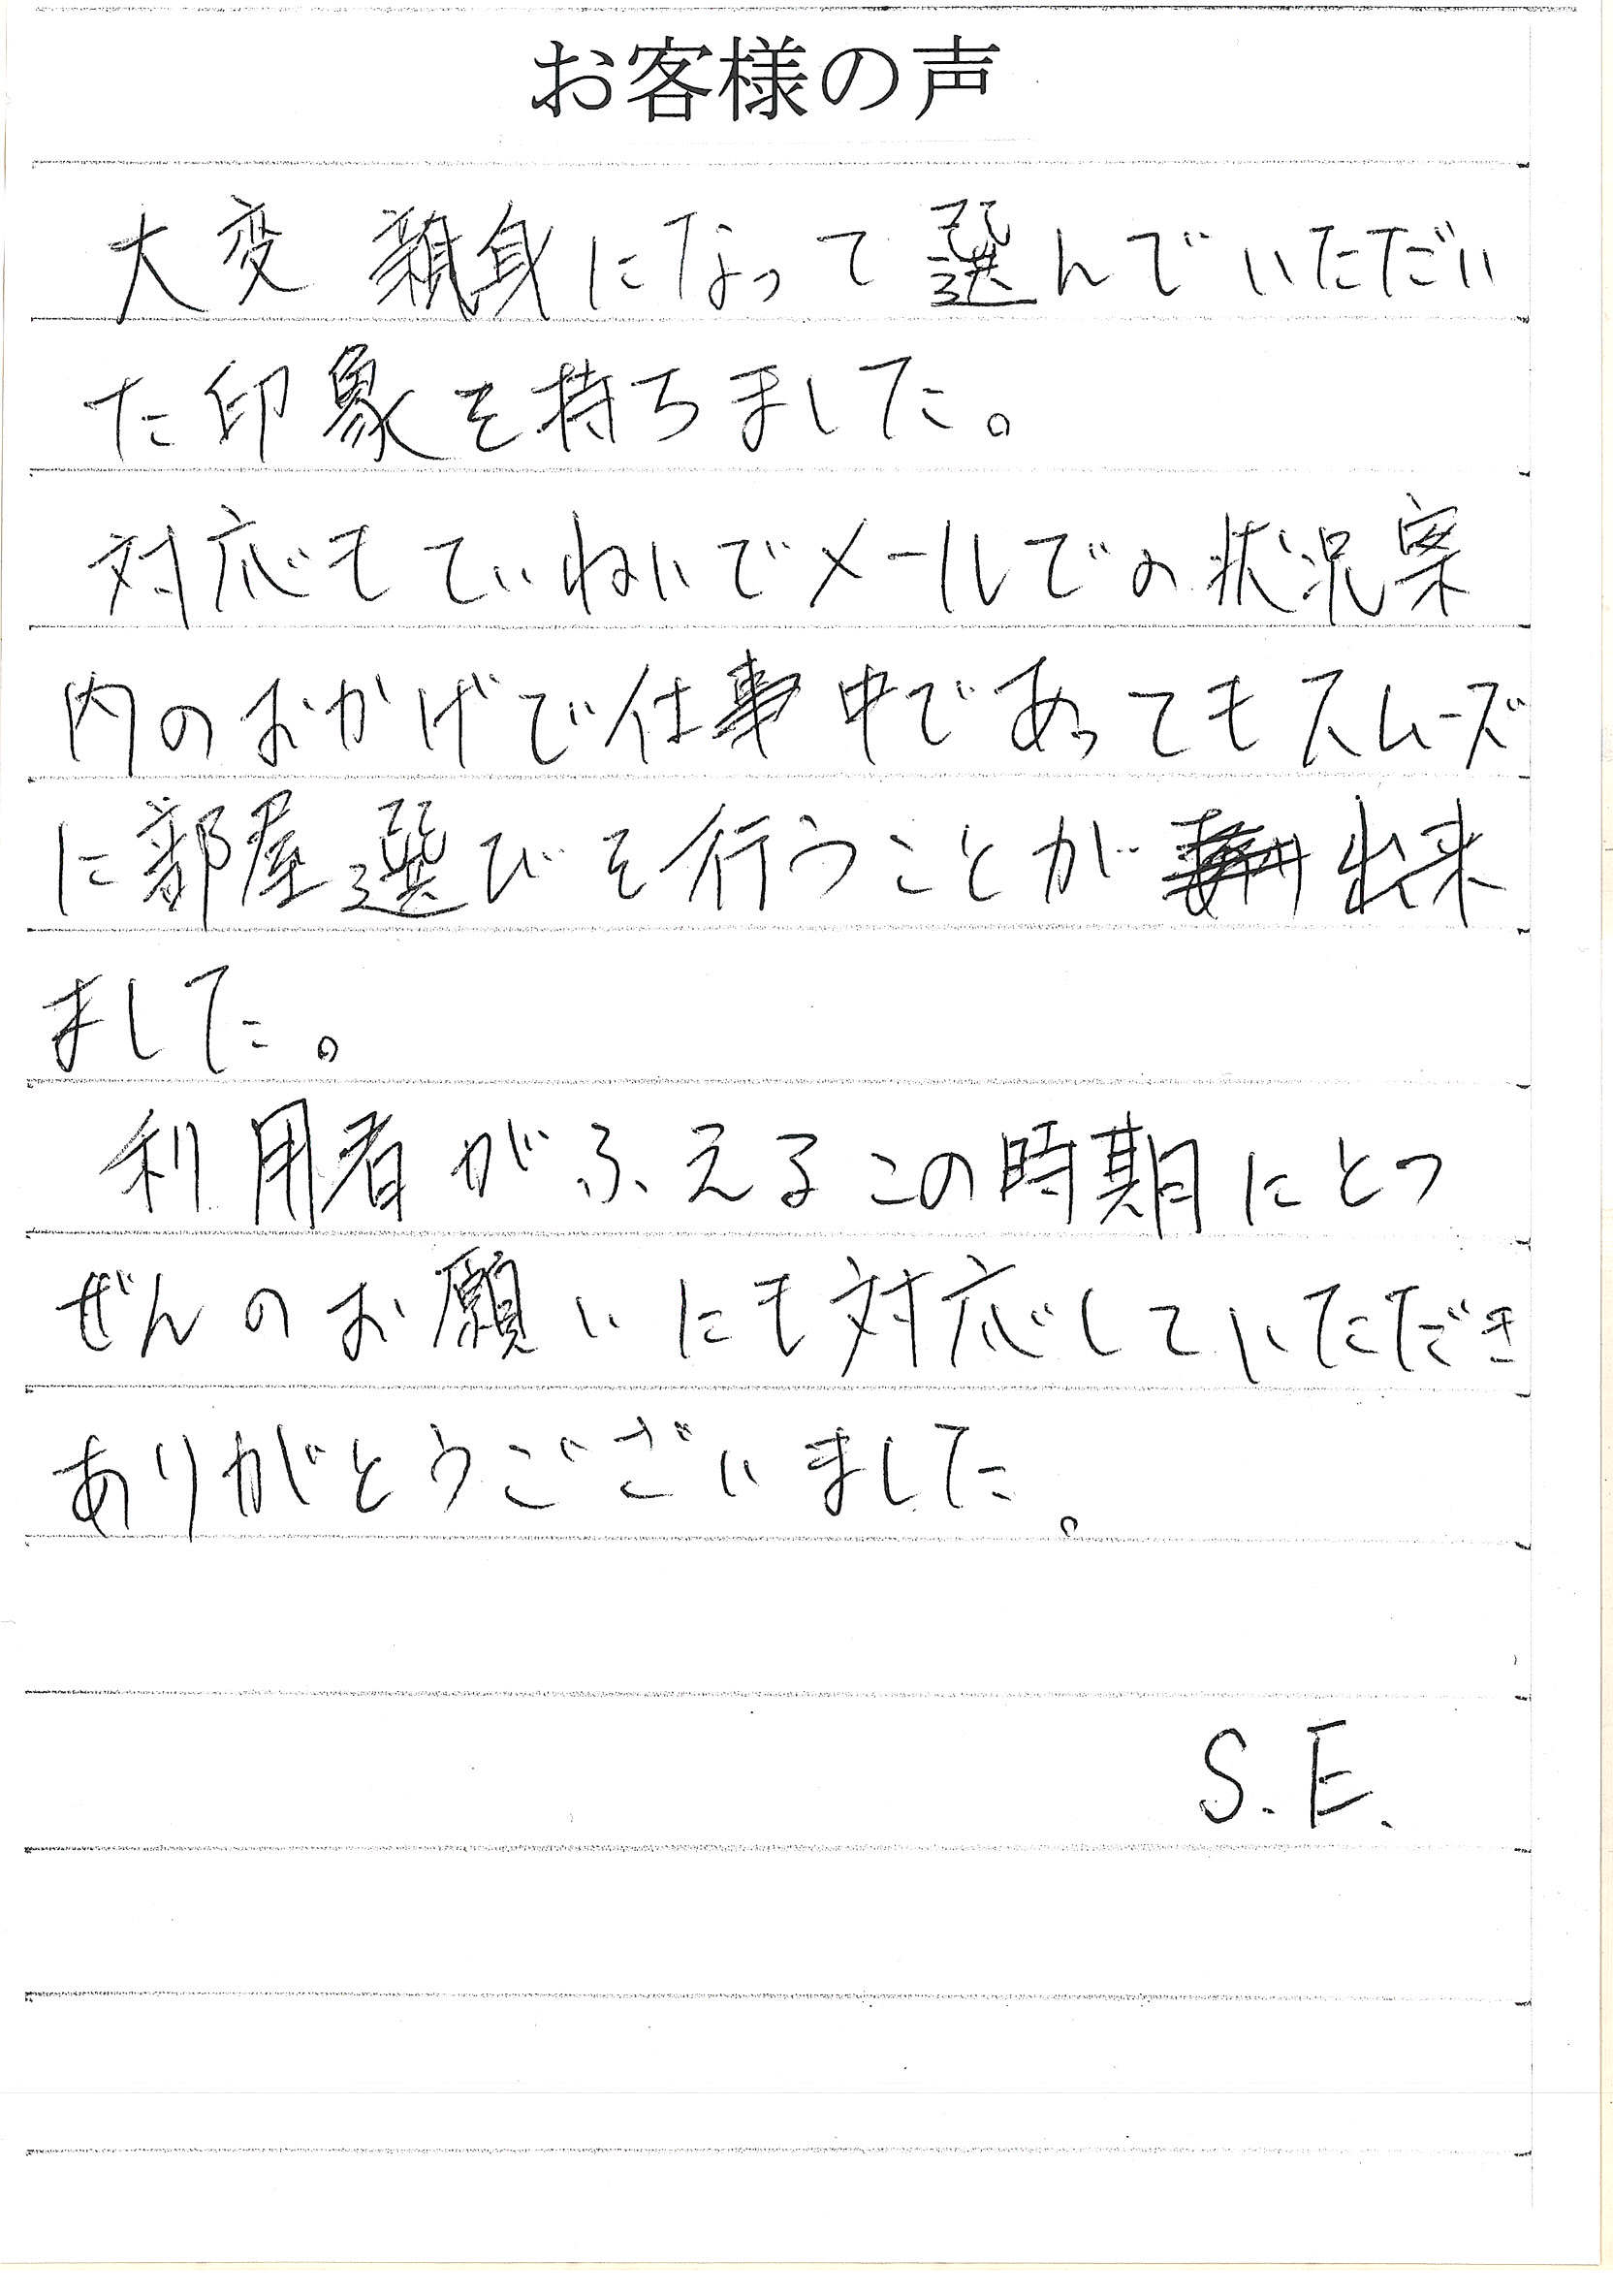 お客様の声
大変親身になって選んでいただい
た印象を持ちました。
対応もていねいでメールでの状況案
内のおかげで仕事中であってもスムーズ
に部屋選びを行うことが出来
ました。
利用者がふえるこの時期にとつ
ぜんのお願いにも対応していただき
ありがとうございました。
S.E.